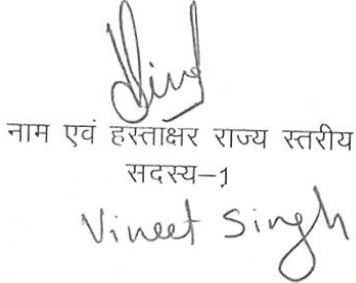 नाम एवं हस्ताक्षर राज्य स्तरीय
सदस्य-1
Vineet Singh